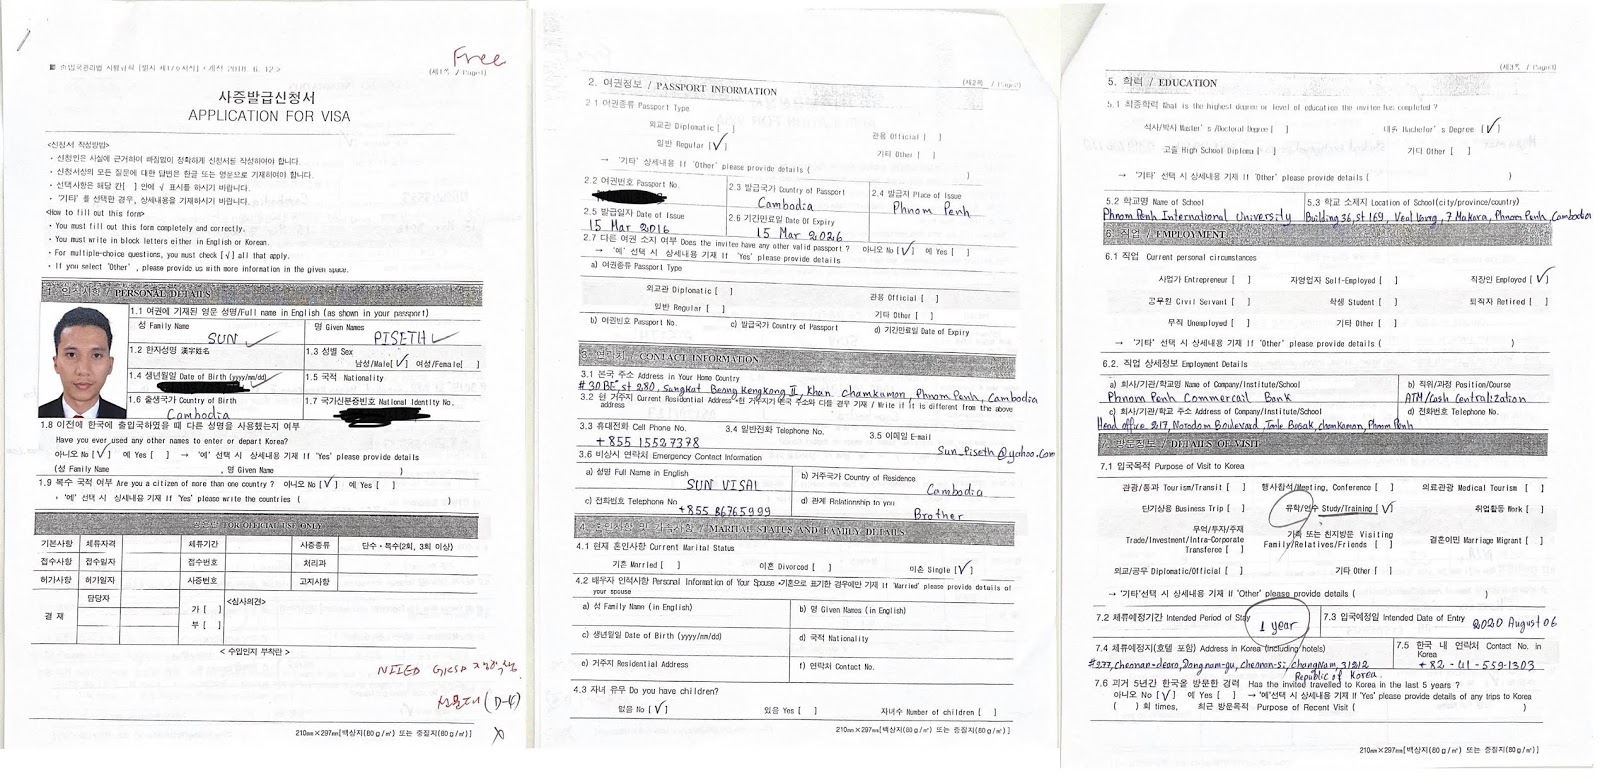 Free
■ 출입국관리법 시행규칙 [별지 제17호서식] <개정 2018. 6. 12.>
(제1쪽 / Page1)
사증발급신청서
APPLICATION FOR VISA
<신청서 작성방법>
• 신청인은 사실에 근거하여 빠짐없이 정확하게 신청서를 작성하여야 합니다.
• 신청서상의 모든 질문에 대한 답변은 한글 또는 영문으로 기재하여야 합니다.
• 선택사항은 해당 칸[ ] 안에 √ 표시를 하시기 바랍니다.
• '기타' 를 선택한 경우, 상세내용을 기재하시기 바랍니다.
<How to fill out this form>
• You must fill out this form completely and correctly.
• You must write in block letters either in English or Korean.
• For multiple-choice questions, you must check [√] all that apply.
• If you select 'Other' , please provide us with more information in the given space.
1. 인적사항 / PERSONAL DETAILS
1.1 여권에 기재된 영문 성명/Full name in English (as shown in your passport)
성 Family Name
SUN
명 Given Names
PISETH
1.2 한자성명 漢字姓名
1.3 성별 Sex
남성/Male[√] 여성/Female[ ]
1.4 생년월일 Date of Birth (yyyy/mm/dd)
1.5 국적 Nationality
1.6 출생국가 Country of Birth
Cambodia
1.7 국가신분증번호 National Identity No.
1.8 이전에 한국에 출입국하였을 때 다른 성명을 사용했는지 여부
Have you ever used any other names to enter or depart Korea?
아니오 No [√] 예 Yes [ ] → '예' 선택시 상세내용 기재 If 'Yes' please provide details
(성 Family Name , 명 Given Name )
1.9 복수 국적 여부 Are you a citizen of more than one country ? 아니오 No [√] 예 Yes [ ]
→ '예' 선택 시 상세내용 기재 If 'Yes' please write the countries ( )
공용란 FOR OFFICIAL USE ONLY
기본사항 체류자격 체류기간 사증종류 단수 · 복수(2회, 3회 이상)
접수사항 접수일자 접수번호 처리과
허가사항 허가일자 사증번호 고지사항
결 재 담당자 가 [ ] <심사의견>
부 [ ]
< 수입인지 부착란 >
NIIED GKSP 장학생
(D-4)
210mm×297mm[백상지(80g/㎡) 또는 중질지(80g/㎡)]
(제2쪽 / Page2)
2. 여권정보 / PASSPORT INFORMATION
2.1 여권종류 Passport Type
외교관 Diplomatic [ ] 관용 Official [ ]
일반 Regular [√] 기타 Other [ ]
→ '기타' 상세내용 If 'Other' please provide details ( )
2.2 여권번호 Passport No.
2.3 발급국가 Country of Passport
Cambodia
2.4 발급지 Place of Issue
Phnom Penh
2.5 발급일자 Date of Issue
15 Mar 2016
2.6 기간만료일 Date Of Expiry
15 Mar 2026
2.7 다른 여권 소지 여부 Does the invitee have any other valid passport ? 아니오 No [√] 예 Yes [ ]
→ '예' 선택 시 상세내용 기재 If 'Yes' please provide details
a) 여권종류 Passport Type
외교관 Diplomatic [ ] 관용 Official [ ]
일반 Regular [ ] 기타 Other [ ]
b) 여권번호 Passport No. c) 발급국가 Country of Passport d) 기간만료일 Date of Expiry
3. 연락처 / CONTACT INFORMATION
3.1 본국 주소 Address in Your Home Country
#30BEº st 280, Sangkat Boeng Kengkang II, Khan Chamkamon, Phnom Penh, Cambodia
3.2 현 거주지 Current Residential Address *현 거주지가 본국 주소와 다를 경우 기재 / Write if it is different from the above
address
3.3 휴대전화 Cell Phone No.
+855 15527378
3.4 일반전화 Telephone No.
3.5 이메일 E-mail
Sun_Piseth@yahoo.com
3.6 비상시 연락처 Emergency Contact Information
a) 성명 Full Name in English
SUN VISAL
b) 거주국가 Country of Residence
Cambodia
c) 전화번호 Telephone No
+855 86765999
d) 관계 Relationship to you
Brother
4. 혼인사항 및 가족사항 / MARITAL STATUS AND FAMILY DETAILS
4.1 현재 혼인사항 Current Marital Status
기혼 Married [ ] 이혼 Divorced [ ] 미혼 Single [√]
4.2 배우자 인적사항 Personal Information of Your Spouse *기혼으로 표기한 경우에만 기재 If 'Married' please provide details of
your spouse
a) 성 Family Name (in English) b) 명 Given Names (in English)
c) 생년월일 Date of Birth (yyyy/mm/dd) d) 국적 Nationality
e) 거주지 Residential Address f) 연락처 Contact No.
4.3 자녀 유무 Do you have children?
없음 No [√] 있음 Yes [ ] 자녀수 Number of children [ ]
210mm×297mm[백상지(80g/㎡) 또는 중질지(80g/㎡)]
(제3쪽 / Page3)
5. 학력 / EDUCATION
5.1 최종학력 What is the highest degree or level of education the invitee has completed ?
석사/박사 Master's /Doctoral Degree [ ] 대졸 Bachelor's Degree [√]
고졸 High School Diploma [ ] 기타 Other [ ]
→ '기타' 선택 시 상세내용 기재 If 'Other' please provide details ( )
5.2 학교명 Name of School
Phnom Penh International University
5.3 학교 소재지 Location of School(city/province/country)
Building 36, st 169, Veal Vong, 7 Makara, Phnom Penh, Cambodia
6. 직업 / EMPLOYMENT
6.1 직업 Current personal circumstances
사업가 Entrepreneur [ ] 자영업자 Self-Employed [ ] 직장인 Employed [√]
공무원 Civil Servant [ ] 학생 Student [ ] 퇴직자 Retired [ ]
무직 Unemployed [ ] 기타 Other [ ]
→ '기타' 선택 시 상세내용 기재 If 'Other' please provide details ( )
6.2. 직업 상세정보 Employment Details
a) 회사/기관/학교명 Name of Company/Institute/School
Phnom Penh Commercail Bank
b) 직위/과정 Position/Course
ATM/Cash Centralization
c) 회사/기관/학교 주소 Address of Company/Institute/School
Head office 217, Norodom Boulevard, Tonle Basak, chamkamon, Phnom Penh
d) 전화번호 Telephone No.
7. 방문정보 / DETAILS OF VISIT
7.1 입국목적 Purpose of Visit to Korea
관광/통과 Tourism/Transit [ ] 행사참석/Meeting, Conference [ ] 의료관광 Medical Tourism [ ]
단기상용 Business Trip [ ] 유학/연수 Study/Training [√] 취업활동 Work [ ]
무역/투자/주재 Trade/Investment/Intra-Corporate Transferee [ ] 가족 또는 친지방문 Visiting Family/Relatives/Friends [ ] 결혼이민 Marriage Migrant [ ]
외교/공무 Diplomatic/Official [ ] 기타 Other [ ]
→ '기타'선택 시 상세내용 기재 If 'Other' please provide details ( )
7.2 체류예정기간 Intended Period of Stay
1 year
7.3 입국예정일 Intended Date of Entry
2020 August 06
7.4 체류예정지(호텔 포함) Address in Korea (including hotels)
#377, cheonan-dearo, Dongnam-gu, cheonan-si, changNam, 31212
Republic of Korea.
7.5 한국 내 연락처 Contact No. in
Korea
+82 - 41 - 559-1303
7.6 과거 5년간 한국을 방문한 경력 Has the invited travelled to Korea in the last 5 years ?
아니오 No [√] 예 Yes [ ] → '예'선택 시 상세내용 기재 If 'Yes' please provide details of any trips to Korea
( ) 회 times, 최근 방문목적 Purpose of Recent Visit ( )
210mm×297mm[백상지(80g/㎡) 또는 중질지(80g/㎡)]